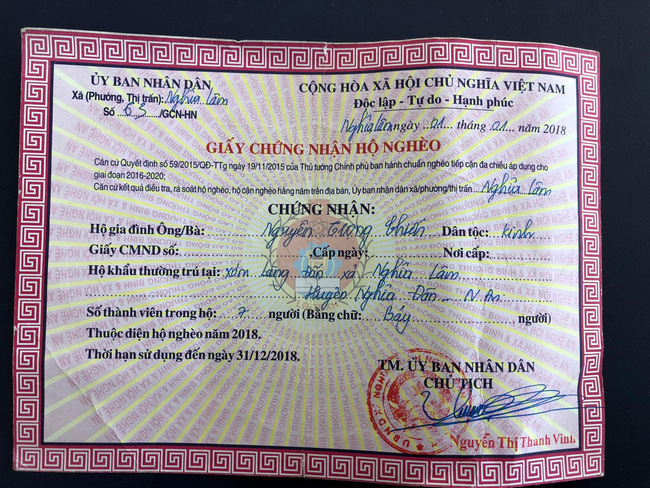 ỦY BAN NHÂN DÂN
Xã (Phường, Thị trấn): Nghĩa Lâm
Số 63 /GCN-HN
CỘNG HÒA XÃ HỘI CHỦ NGHĨA VIỆT NAM
Độc lập - Tự do - Hạnh phúc
Nghĩa Lâm ngày 01 tháng 01 năm 2018
GIẤY CHỨNG NHẬN HỘ NGHÈO
Căn cứ Quyết định số 59/2015/QĐ-TTg ngày 19/11/2015 của Thủ tướng Chính phủ ban hành chuẩn nghèo tiếp cận đa chiều áp dụng cho
giai đoạn 2016-2020;
Căn cứ kết quả điều tra, rà soát hộ nghèo, hộ cận nghèo hằng năm trên địa bàn, Ủy ban nhân dân xã/phường/thị trấn Nghĩa Lâm
CHỨNG NHẬN:
Hộ gia đình Ông/Bà: Nguyễn Dân tộc: Kinh
Giấy CMND số: Cấp ngày: Nơi cấp:
Hộ khẩu thường trú tại: xóm Làng xã Nghĩa Lâm
Huyện Nghĩa Đàn - N.An
Số thành viên trong hộ: 7 người (Bằng chữ: Bảy người)
Thuộc diện hộ nghèo năm 2018.
Thời hạn sử dụng đến ngày 31/12/2018.
TM. ỦY BAN NHÂN DÂN
CHỦ TỊCH
Nguyễn Thị Thanh Vinh